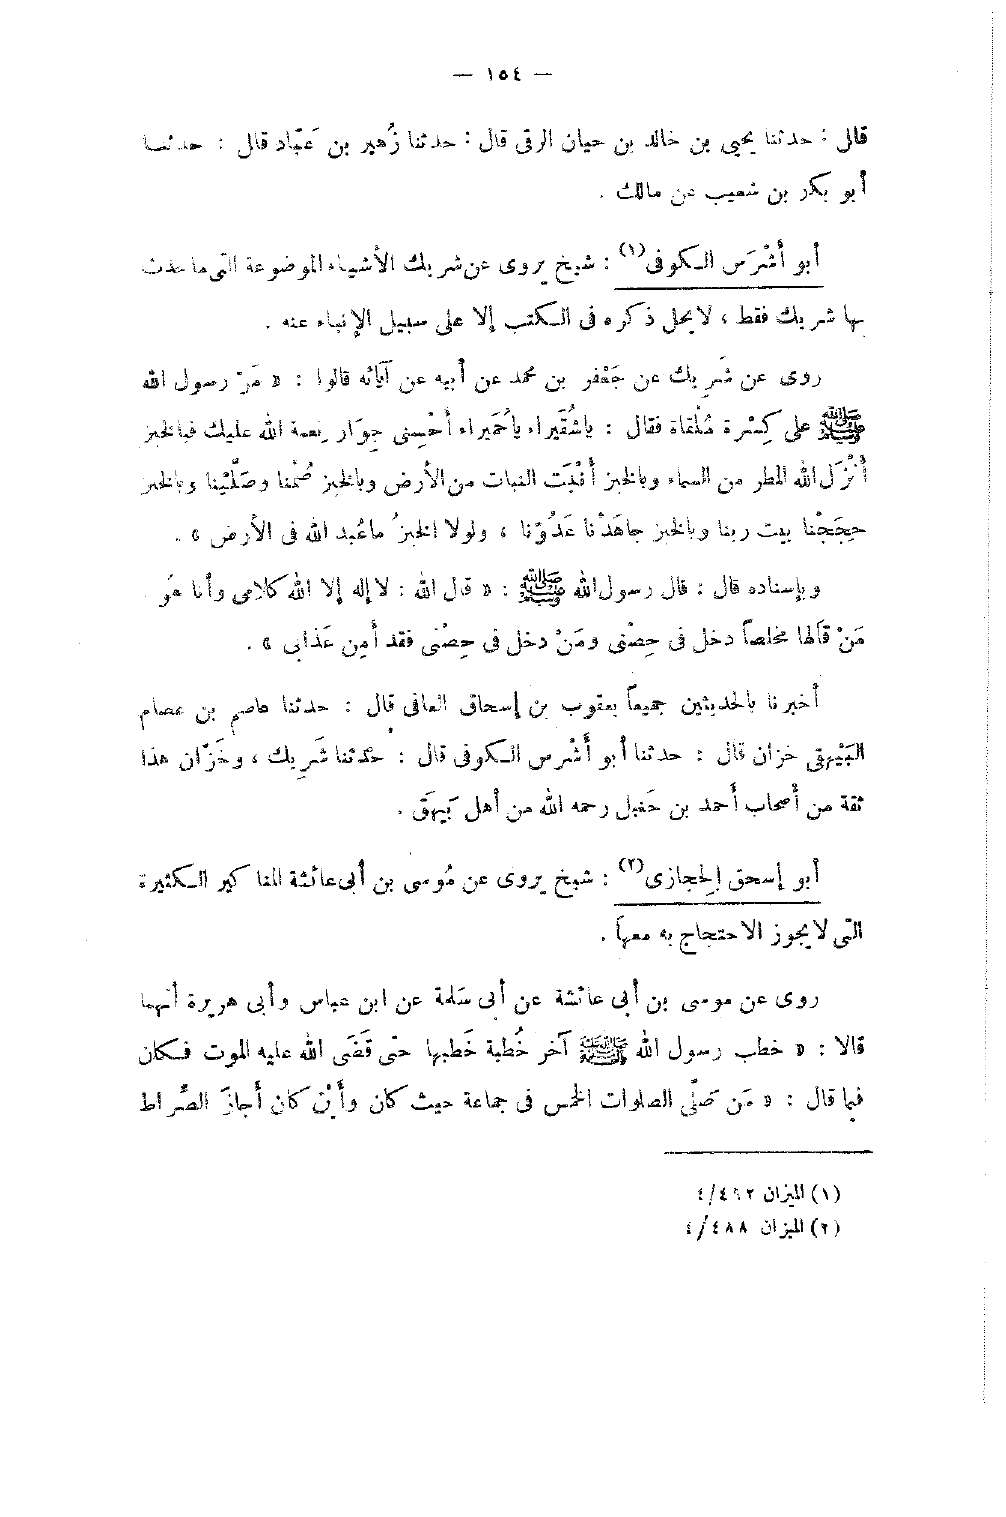 — ١٥٤ —
قال : حدثنا يحيى بن خالد بن حيان الرقى قال : حدثنا زُهير بن عَبّاد قال : حدثنـا
أبو بكر بن شعيب عن مالك .
أبو أشْرَس الـكوفى(١) : شيخ يروى عن شريك الأشياء الموضوعة التى ما حدث
بها شريك فقط ، لا يحل ذكره فى الـكتب إلا على سبيل الإنباء عنه .
روى عن شَرِيك عن جَعْفر بن محمد عن أبيه عن آبَائه قالوا : « مَرّ رسول الله
ﷺ على كِسْرة مُلْقاة فقال : ياشُقَيراء ياحُمَيراء أحْسِنى جِوَار نِعمة الله عليك فبالخبز
أنْزَل الله المطر من السماء وبالخبز أنْبَتَ النبات من الأرض وبالخبز صُمْنا وصَلَّيْنا وبالخبز
حجَجْنا بيت ربنا وبالخبز جاهَدْنا عَدُوّنا ، ولولا الخبزُ ماعُبد الله فى الأرض » .
وبإسناده قال : قال رسول الله ﷺ : « قال الله : لا إله إلا الله كلامى وأنا هُوَ
مَنْ قَالها مخلصاً دخل فى حِصْنى ومَنْ دخل فى حِصْنى فقد أمِن عَذابى » .
أخبرنا بالحديثين جميعاً يعقوب بن إسحاق العافى قال : حدثنا عاصم بن عصام
البَيْهقى خزان قال : حدثنا أبو أَشْرس الـكوفى قال : حدّثنا شَرِيك ، وخَزّان هذا
ثقة من أصحاب أحمد بن حَنبل رحمه الله من أهل بَيهَق .
أبو إسحق الِحجازى(٢) : شيخ يروى عن مُوسى بن أبى عائشة المناكير الـكثيرة
التى لا يجوز الاحتجاج به معها .
روى عن موسى بن أبى عائشة عن أبى سَلمة عن ابن عباس وأبى هريرة أنهما
قالا : « خطب رسول الله ﷺ آخر خُطبة خَطبها حتى قَضَى الله عليه الموت فـكان
فيما قال : « مَن صَلّى الصلوات الخمس فى جماعة حيث كان وأيْن كان أجازَ الصِّراط
(١) الميزان ٤/٤٩٢
(٢) الميزان ٤/٤٨٨